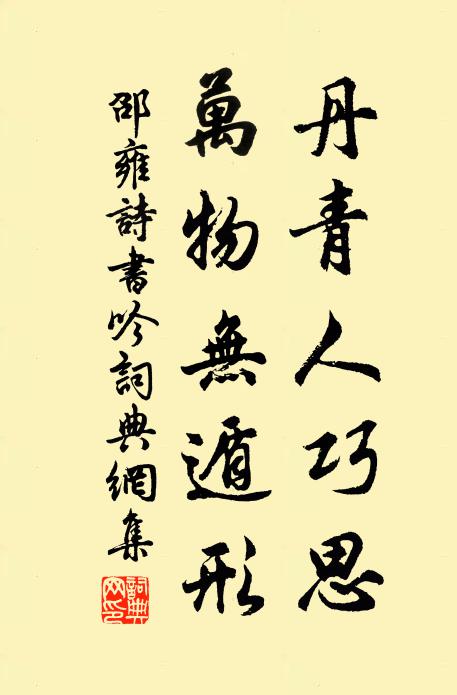 丹青人巧思
萬物無遁形
邵雍詩書吟詞典網集